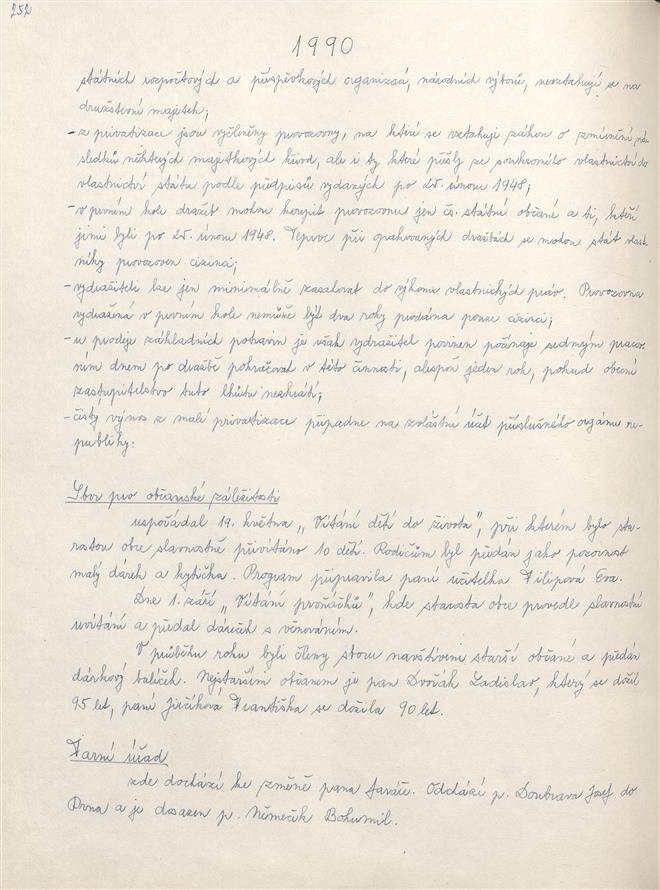 252
1990
státních rozpočtových a příspěvkových organizací, národních výborů, nevztahují se na
družstevní majetek;
- z privatizace jsou vyčleněny provozovny, na které se vztahuje zákon o zmírnění ná-
sledků některých majetkových křivd, ale i ty, které přešly ze soukromého vlastnictví do
vlastnictví státu podle předpisů vydaných po 25. únoru 1948;
- v prvném kole dražeb mohou koupit provozovnu jen čs. státní občané a ti, kteří
jimi byli po 25. únoru 1948. Teprve při opakovaných dražbách se mohou stát vlast-
níky provozoven cizinci;
- vydražiteli lze jen minimálně zasahovat do výkonu vlastnických práv. Provozovna
vydražená v prvním kole nemůže být dva roky prodána pouze cizinci;
- u prodeje základních potravin je však vydražitel povinen počínaje sedmým pracov-
ním dnem po dražbě pokračovat v této činnosti, alespoň jeden rok, pokud obecní
zastupitelstvo tuto lhůtu nezkrátí;
- čistý výnos z malé privatizace připadne na zvláštní účet příslušného orgánu re-
publiky:
Sbor pro občanské záležitosti
uspořádal 19. května „Vítání dětí do života", při kterém bylo sta-
rostou obce slavnostně přivítáno 10 dětí. Rodičům byl předán jako pozornost
malý dárek a kytička. Program připravila paní učitelka Filipová Eva.
Dne 1. září „Vítání prvňáčků", kde starosta obce provedl slavnostní
uvítání a předal dáreček s věnováním.
V průběhu roku byli členy sboru navštíveni starší občané a předán
dárkový balíček. Nejstarším občanem je pan Dvořák Ladislav, který se dožil
95 let, paní Jiříčková Františka se dožila 90 let.
Farní úřad
zde dochází ke změně pana faráře. Odchází p. Doubrava Josef do
Brna a je dosazen p. Němeček Bohumil.